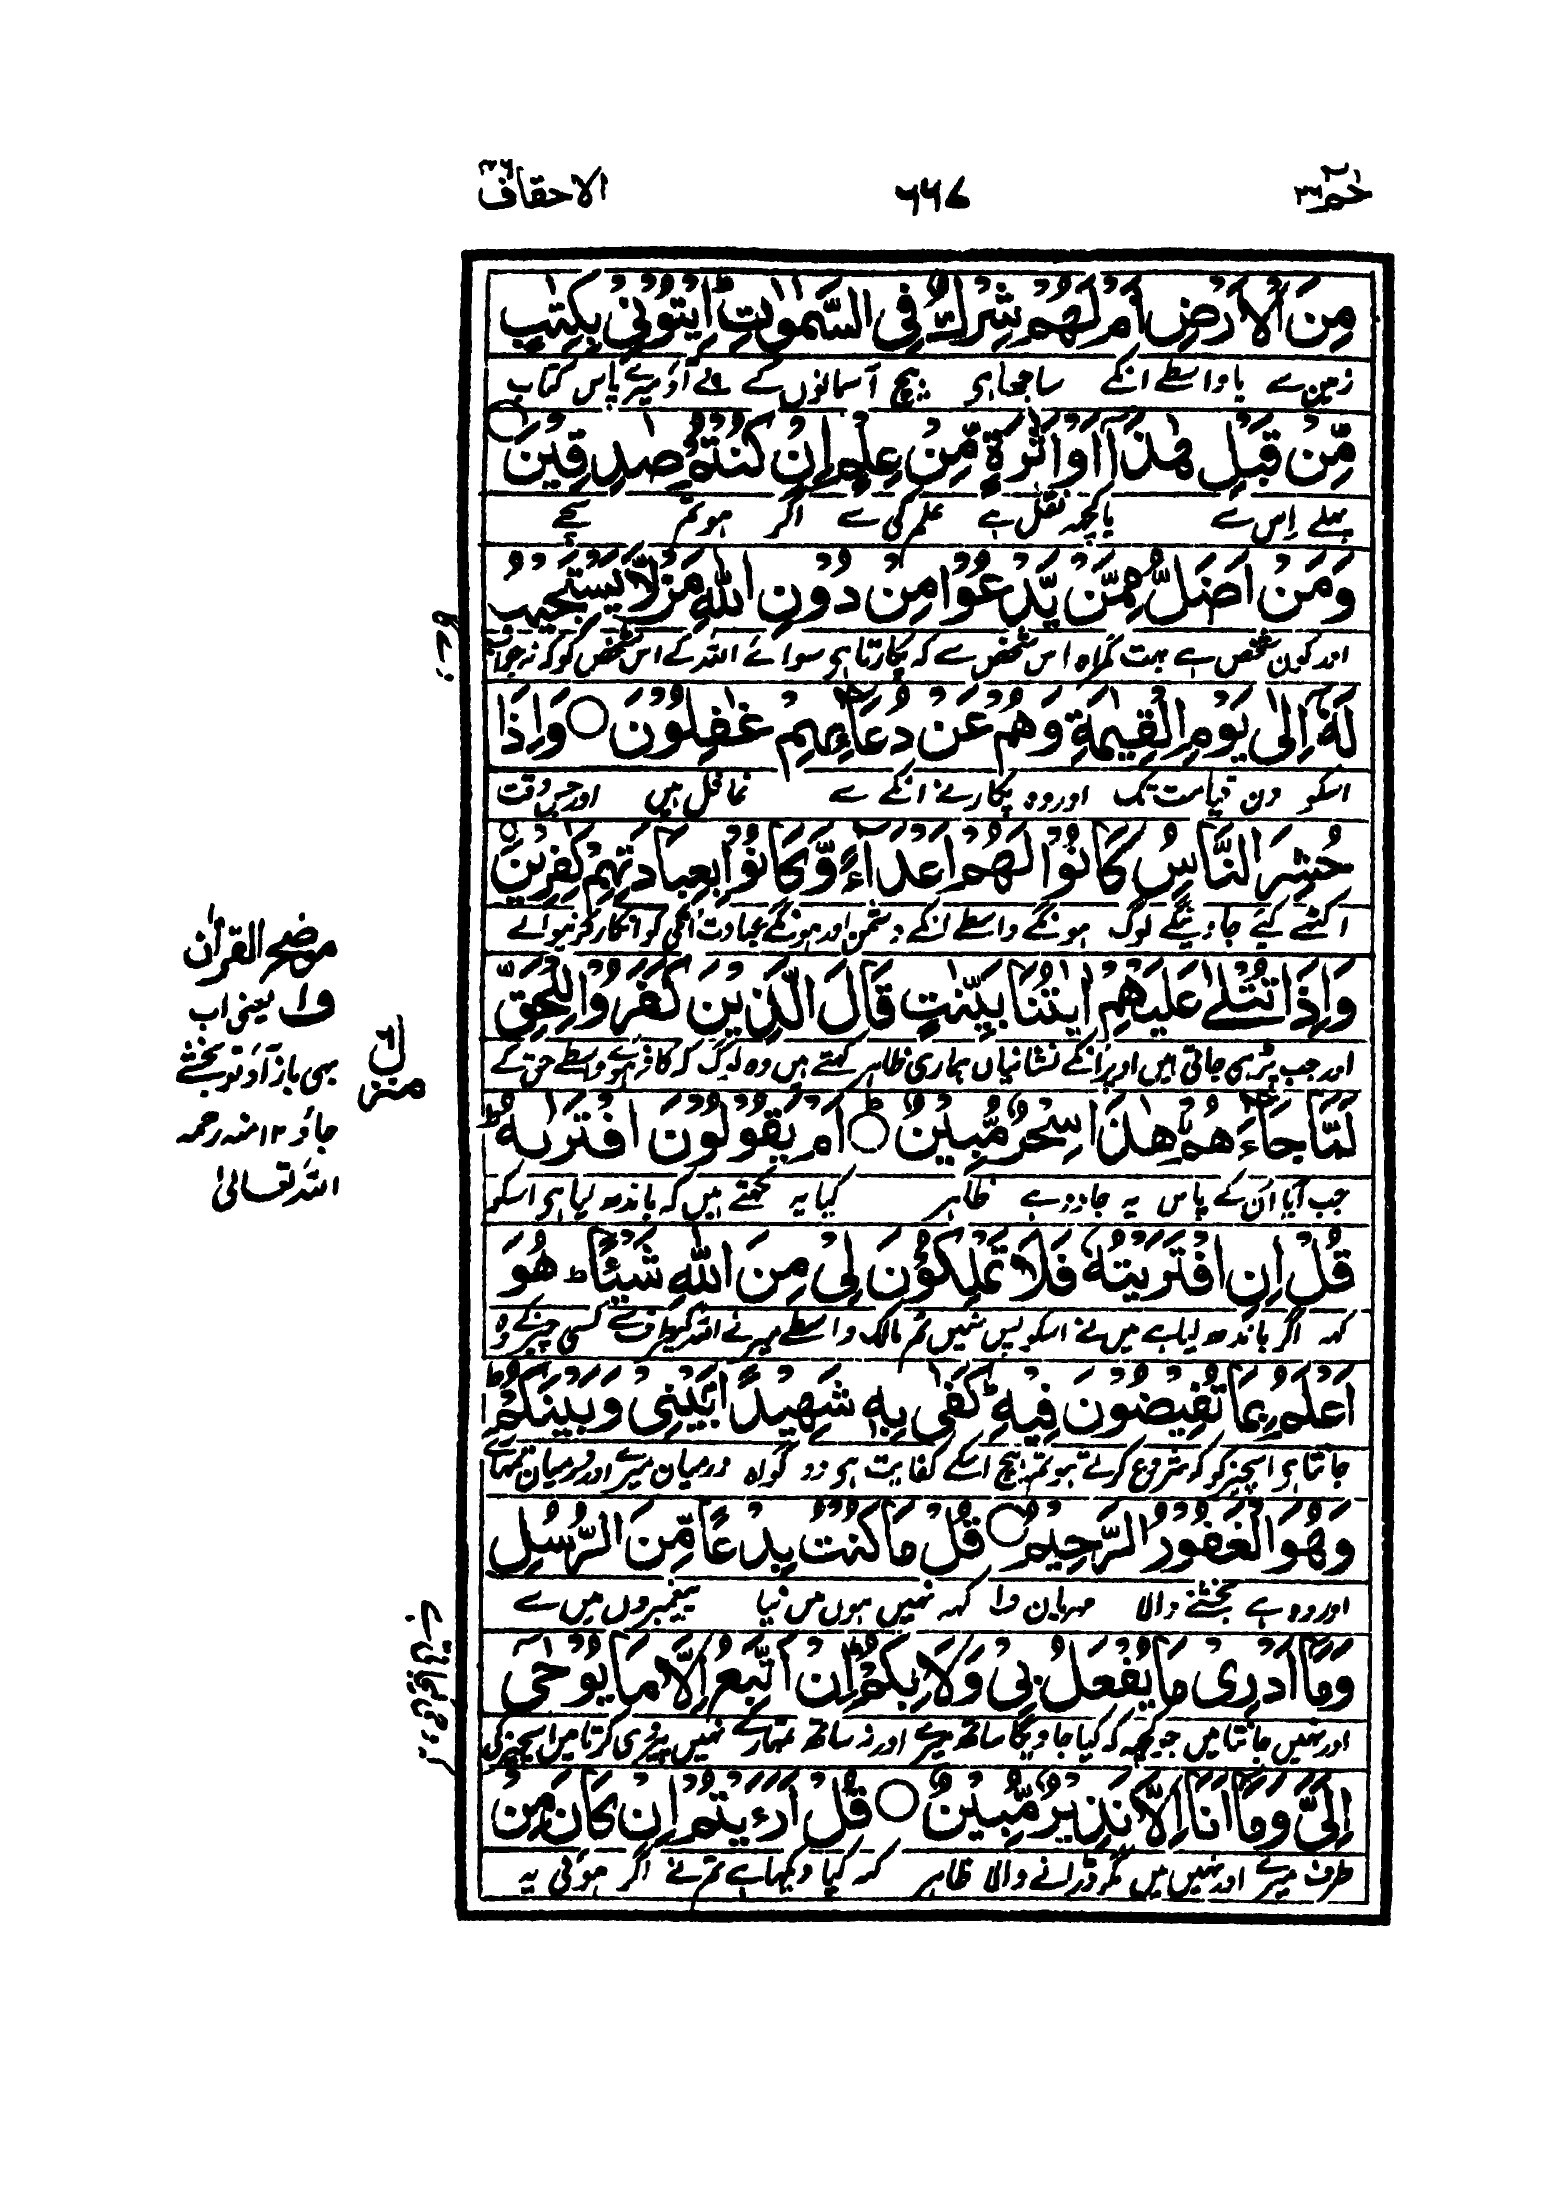 حٰمٓ ۲۶
۶۶۷
الاحقاف ۴۶
مِنَ الْاَرْضِ اَمْ لَهُمْ شِرْكٌ فِی السَّمٰوٰتِ ؕ اِیْتُوْنِیْ بِكِتٰبٍ
زمین سے یا واسطے انکے ساجھا ہی بیچ آسمانوں کے لے آؤ میرے پاس کتاب
مِّنْ قَبْلِ هٰذَاۤ اَوْ اَثٰرَةٍ مِّنْ عِلْمٍ اِنْ كُنْتُمْ صٰدِقِیْنَ ○
پہلے اِس سے یا کچھ نقل ہے علم کی سے اگر ہو تم سچے
وَ مَنْ اَضَلُّ مِمَّنْ یَّدْعُوْا مِنْ دُوْنِ اللّٰهِ مَنْ لَّا یَسْتَجِیْبُ
اور کون شخص ہے بہت گمراہ اس شخص سے کہ پکارتا ہی سوائے اللہ کے اس شخص کو کہ نہ جواب
لَهٗۤ اِلٰی یَوْمِ الْقِیٰمَةِ وَ هُمْ عَنْ دُعَآئِهِمْ غٰفِلُوْنَ ○ وَ اِذَا
اسکو دن قیامت تک اور وہ پکارنے انکے سے غافل ہیں اور جس وقت
حُشِرَ النَّاسُ كَانُوْا لَهُمْ اَعْدَآءً وَّ كَانُوْا بِعِبَادَتِهِمْ كٰفِرِیْنَ ○
اکٹھے کیے جاوینگے لوگ ہونگے واسطے انکے دشمن اور ہونگے عبادت انکی کو انکار کرنیوالے
وَ اِذَا تُتْلٰی عَلَیْهِمْ اٰیٰتُنَا بَیِّنٰتٍ قَالَ الَّذِیْنَ كَفَرُوْا لِلْحَقِّ
اور جب پڑہی جاتی ہیں اوپر انکے نشانیاں ہماری ظاہر کہتے ہیں وہ لوگ کہ کافر ہوے واسطے حق کے
لَمَّا جَآءَهُمْ هٰذَا سِحْرٌ مُّبِیْنٌ ○ اَمْ یَقُوْلُوْنَ افْتَرٰىهُ ؕ
جب آیا اُن کے پاس یہ جادو ہے ظاہر کیا یہ کہتے ہیں کہ باندھ لیا ہی اسکو
قُلْ اِنِ افْتَرَیْتُهٗ فَلَا تَمْلِكُوْنَ لِیْ مِنَ اللّٰهِ شَیْـًٔا ؕ هُوَ
کہہ اگر باندھ لیا ہے میں نے اسکو پس نہیں تم مالک واسطے میرے اللہ کیطرف سے کسی چیز کے وہ
اَعْلَمُ بِمَا تُفِیْضُوْنَ فِیْهِ ؕ كَفٰی بِهٖ شَهِیْدًۢا بَیْنِیْ وَ بَیْنَكُمْ ؕ
جانتا ہی اسچیز کو کہ شروع کرتے ہو تم بیچ اسکے کفایت ہی وہ گواہ درمیان میرے اور درمیان تمہارے
وَ هُوَ الْغَفُوْرُ الرَّحِیْمُ ○ قُلْ مَا كُنْتُ بِدْعًا مِّنَ الرُّسُلِ
اور وہ ہے بخشنے والا مہربان ف۱ کہہ نہیں ہوں میں نیا پیغمبروں میں سے
وَ مَاۤ اَدْرِیْ مَا یُفْعَلُ بِیْ وَ لَا بِكُمْ ؕ اِنْ اَتَّبِعُ اِلَّا مَا یُوْحٰۤی
اور نہیں جانتا میں جو کچھ کہ کیا جاویگا ساتھ میرے اور نہ ساتھ تمہارے نہیں پیروی کرتا میں اسچیز کی
اِلَیَّ وَ مَاۤ اَنَا اِلَّا نَذِیْرٌ مُّبِیْنٌ ○ قُلْ اَرَءَیْتُمْ اِنْ كَانَ مِنْ
طرف میرے اور نہیں میں مگر ڈرانے والا ظاہر کہہ کیا دیکھا ہے تم نے اگر ہوئی یہ
موضح القرآن
ف۱ یعنی اب
بہی باز آؤ تو بخشے
جاؤ ۱۲ منہ رحمہ
اللہ تعالیٰ
منزل ۶